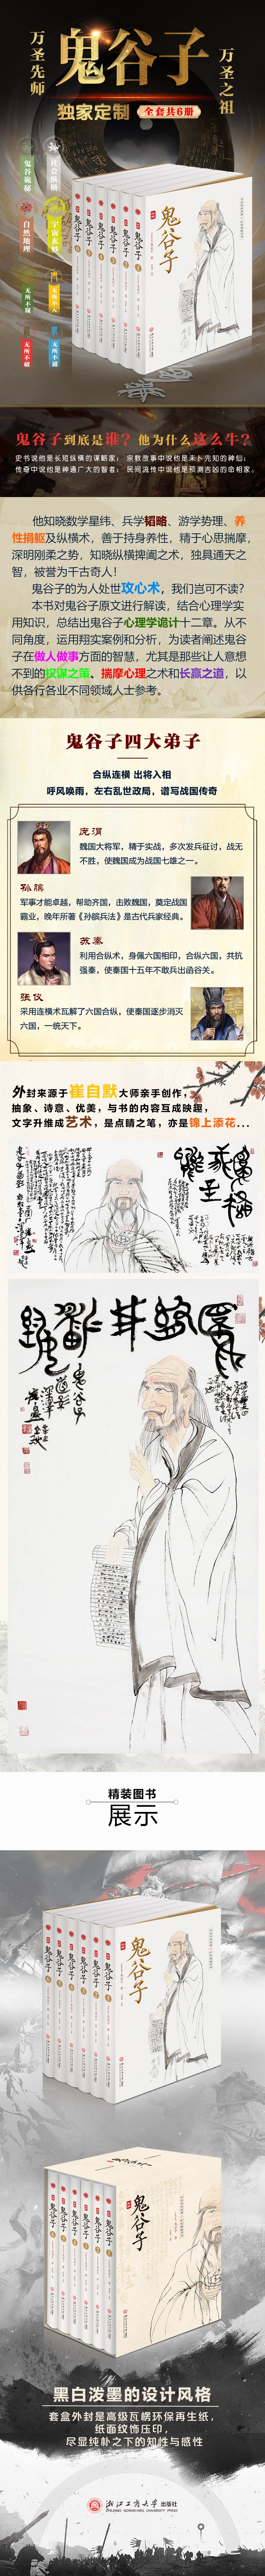 万圣先师
鬼谷子
万圣之祖
独家定制
全套共6册
鬼谷诡秘
社会纵横
自然地理
宇宙玄妙
无所不窥
无所不入
无所不破
无所不通
鬼谷子
鬼谷子到底是谁？他为什么这么牛？
史书说他是长短纵横的谋略家； 宗教故事中说他是未卜先知的神仙；
传奇中说他是神通广大的智者； 民间流传中说他是预测吉凶的命相家。
他知晓数学星纬、兵学韬略、游学势理、养
性捐躯及纵横术，善于持身养性，精于心思揣摩，
深明刚柔之势，知晓纵横捭阖之术，独具通天之
智，被誉为千古奇人！
鬼谷子的为人处世攻心术，我们岂可不读？
本书对鬼谷子原文进行解读，结合心理学实
用知识，总结出鬼谷子心理学诡计十二章。从不
同角度，运用翔实案例和分析，为读者阐述鬼谷
子在做人做事方面的智慧，尤其是那些让人意想
不到的权谋之策、揣摩心理之术和长赢之道，以
供各行各业不同领域人士参考。
鬼谷子四大弟子
合纵连横 出将入相
呼风唤雨，左右乱世政局，谱写战国传奇
庞涓
魏国大将军，精于实战，多次发兵征讨，战无
不胜，使魏国成为战国七雄之一。
孙膑
军事才能卓越，帮助齐国，击败魏国，奠定战国
霸业，晚年所著《孙膑兵法》是古代兵家经典。
苏秦
利用合纵术，身佩六国相印，合纵六国，共抗
强秦，使秦国十五年不敢兵出函谷关。
张仪
采用连横术瓦解了六国合纵，使秦国逐步消灭
六国，一统天下。
外封来源于崔自默大师亲手创作，
抽象、诗意、优美，与书的内容互成映趣，
文字升维成艺术，是点睛之笔，亦是锦上添花...
精装图书
展示
鬼谷子
鬼谷子
黑白泼墨的设计风格
套盒外封是高级瓦楞环保再生纸，
纸面纹饰压印，
尽显纯朴之下的知性与感性
浙江工商大学出版社
ZHEJIANG GONGSHANG UNIVERSITY PRESS